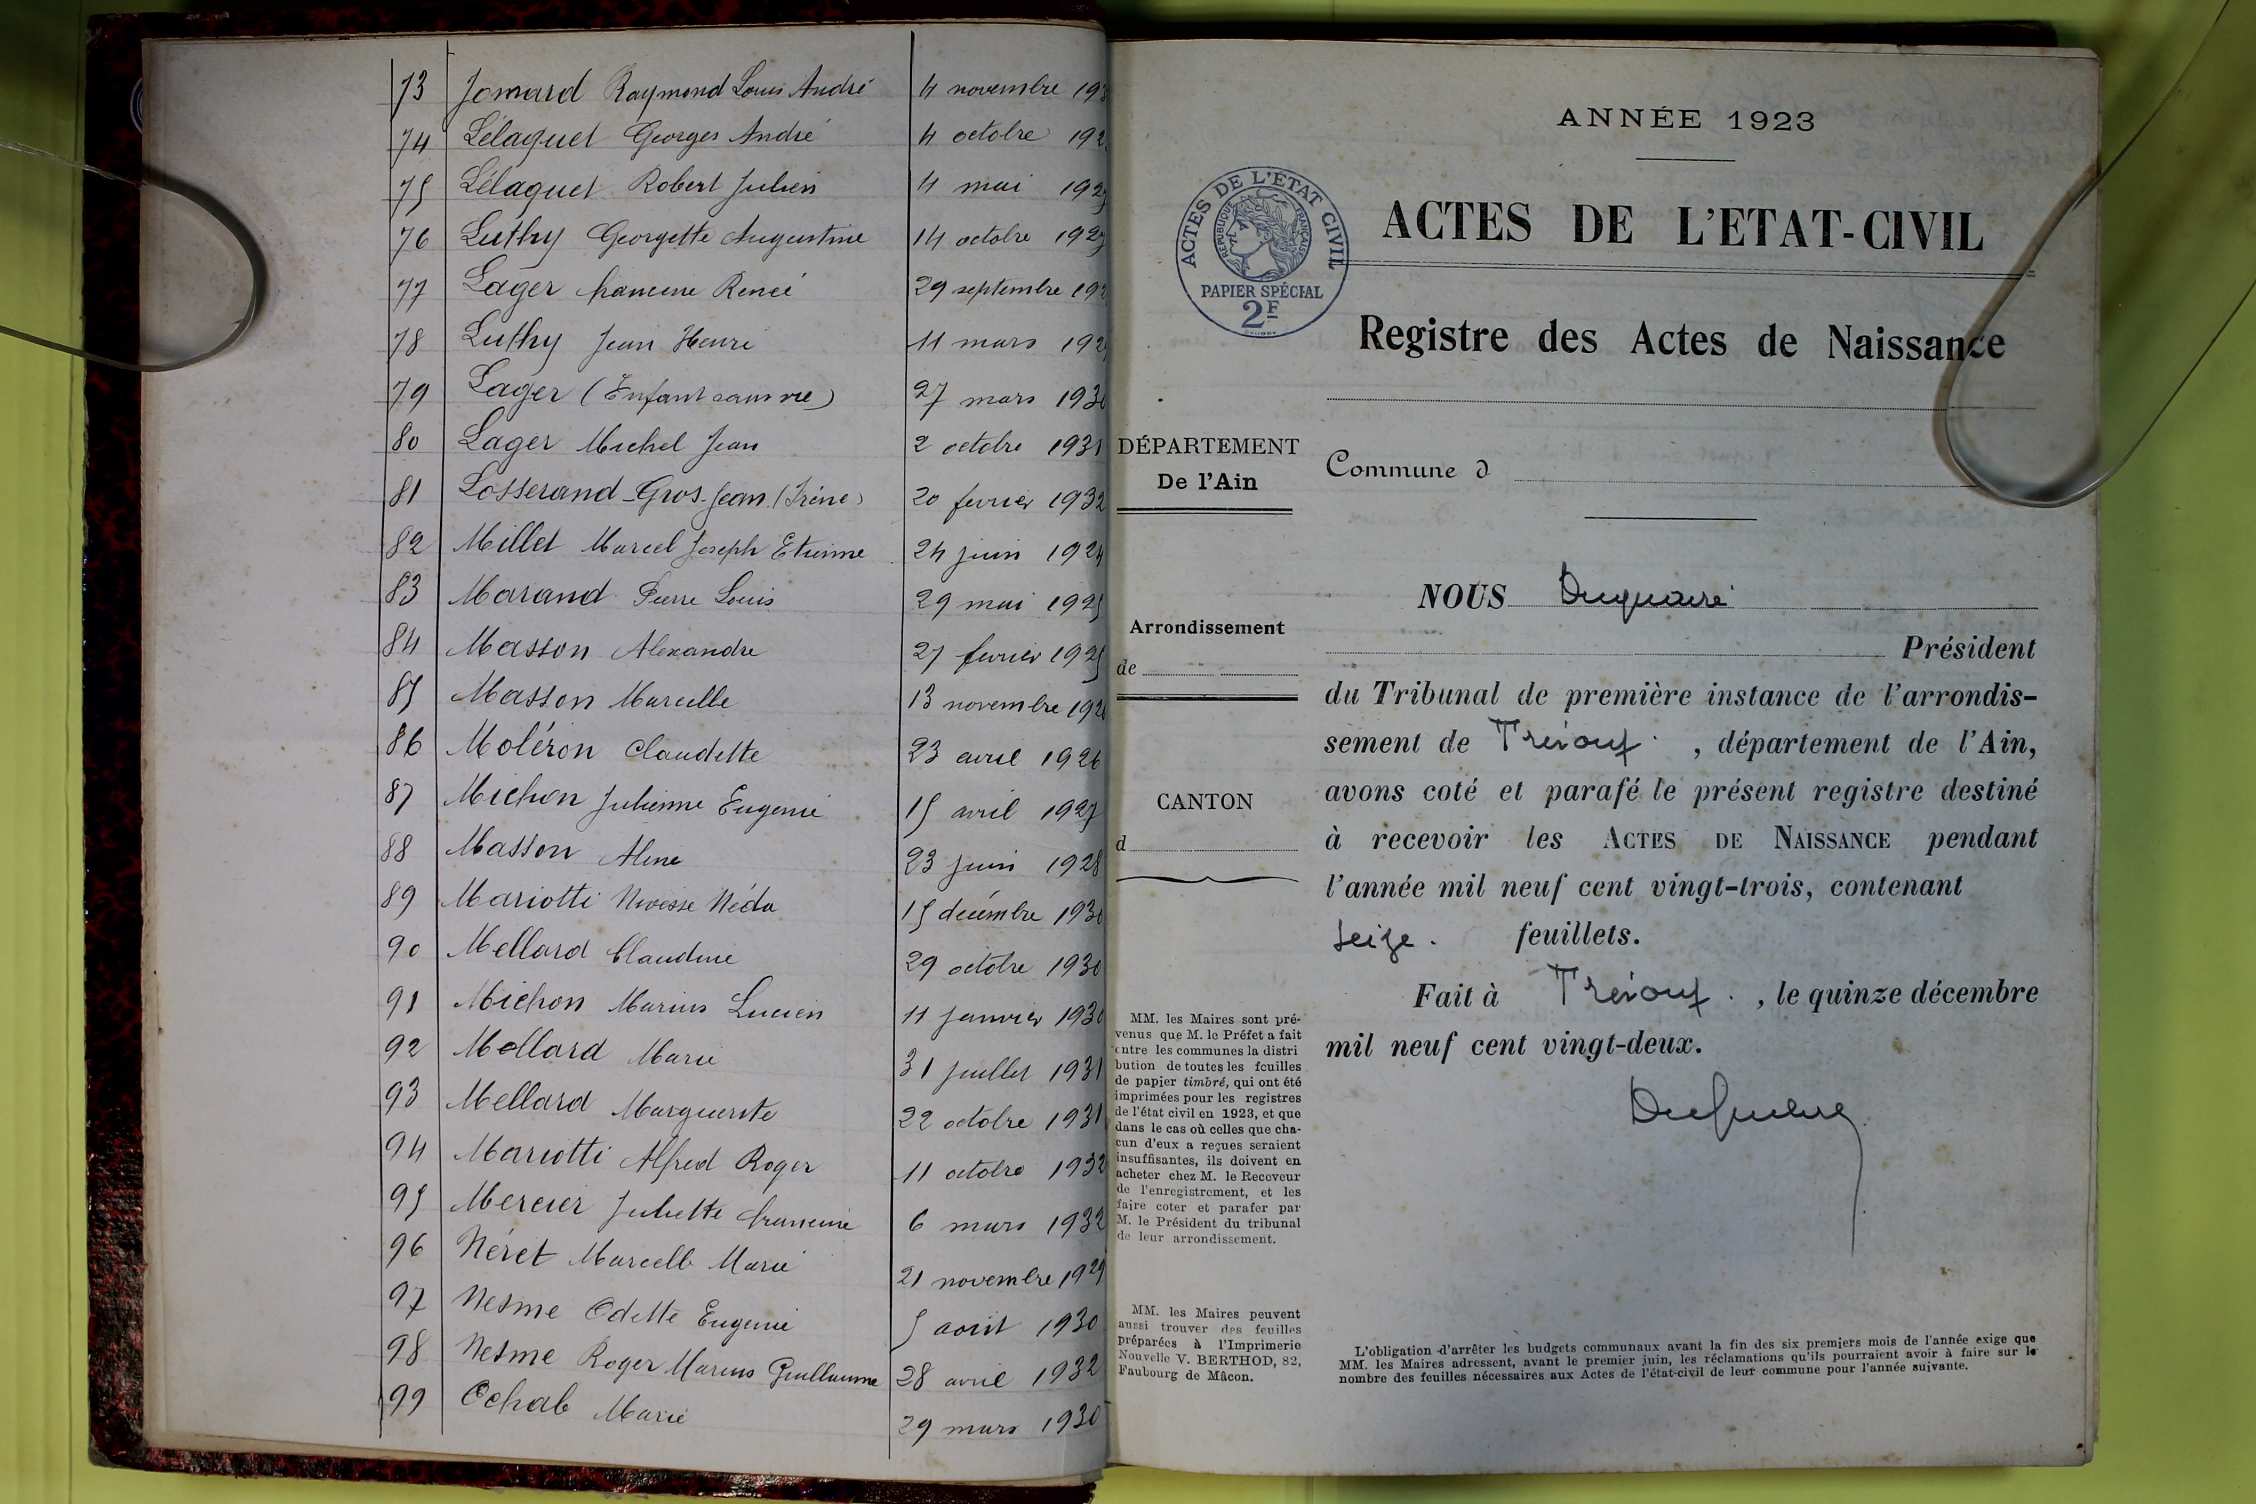 73 Jomard Raymond Louis André 4 novembre
74 Lélaquet Georges André 4 octobre
75 Lélaquet Robert Julien 4 mai 1925
76 Luthy Georgette Augustine 14 octobre 1927
77 Lager Francine Renée 29 septembre
78 Luthy Jean Henri 11 mars
79 Lager (Enfant sans vie) 27 mars 1930
80 Lager Michel Jean 2 octobre 1931
81 Losserand-Gros-Jean (Irène) 20 fevrier 1932
82 Millet Marcel Joseph Etienne 24 juin 1924
83 Marand Pierre Louis 29 mai 1925
84 Masson Alexandre 27 fevrier 1925
85 Masson Marcelle 13 novembre
86 Moléron Claudette 23 avril 1926
87 Michon Julienne Eugenie 15 avril 1927
88 Masson Aline 23 juin 1928
89 Mariotti Néda 15 décembre 1930
90 Mellard Claudine 29 octobre 1930
91 Michon Marius Lucien 11 janvier 1930
92 Mollard Marie 31 juillet 1931
93 Mellard Marguerite 22 octobre 1931
94 Mariotti Alfred Roger 11 octobre 1932
95 Mercier Juliette Francine 6 mars 1932
96 Néret Marcelle Marie 21 novembre 1929
97 Nesme Odette Eugenie 5 août 1930
98 Nesme Roger Marius Guillaume 28 avril 1932
99 Ochab Marie 29 mars 1930
ANNÉE 1923
ACTES DE L'ETAT CIVIL
RÉPUBLIQUE FRANÇAISE
PAPIER SPÉCIAL
2F
ACTES DE L'ETAT-CIVIL
Registre des Actes de Naissance
DÉPARTEMENT
De l'Ain
Commune d
Arrondissement
de
CANTON
d
NOUS
Président
du Tribunal de première instance de l'arrondis-
sement de Trévoux , département de l'Ain,
avons coté et parafé le présent registre destiné
à recevoir les ACTES DE NAISSANCE pendant
l'année mil neuf cent vingt-trois, contenant
seize. feuillets.
Fait à Trévoux. , le quinze décembre
mil neuf cent vingt-deux.
MM. les Maires sont pré-
venus que M. le Préfet a fait
entre les communes la distri
bution de toutes les feuilles
de papier timbré, qui ont été
imprimées pour les registres
de l'état civil en 1923, et que
dans le cas où celles que cha-
cun d'eux a reçues seraient
insuffisantes, ils doivent en
acheter chez M. le Receveur
de l'enregistrement, et les
faire coter et parafer par
M. le Président du tribunal
de leur arrondissement.
MM. les Maires peuvent
aussi trouver des feuilles
préparées à l'Imprimerie
Nouvelle V. BERTHOD, 82,
Faubourg de Mâcon.
L'obligation d'arrêter les budgets communaux avant la fin des six premiers mois de l'année exige que
MM. les Maires adressent, avant le premier juin, les réclamations qu'ils pourraient avoir à faire sur le
nombre des feuilles nécessaires aux Actes de l'état-civil de leur commune pour l'année suivante.